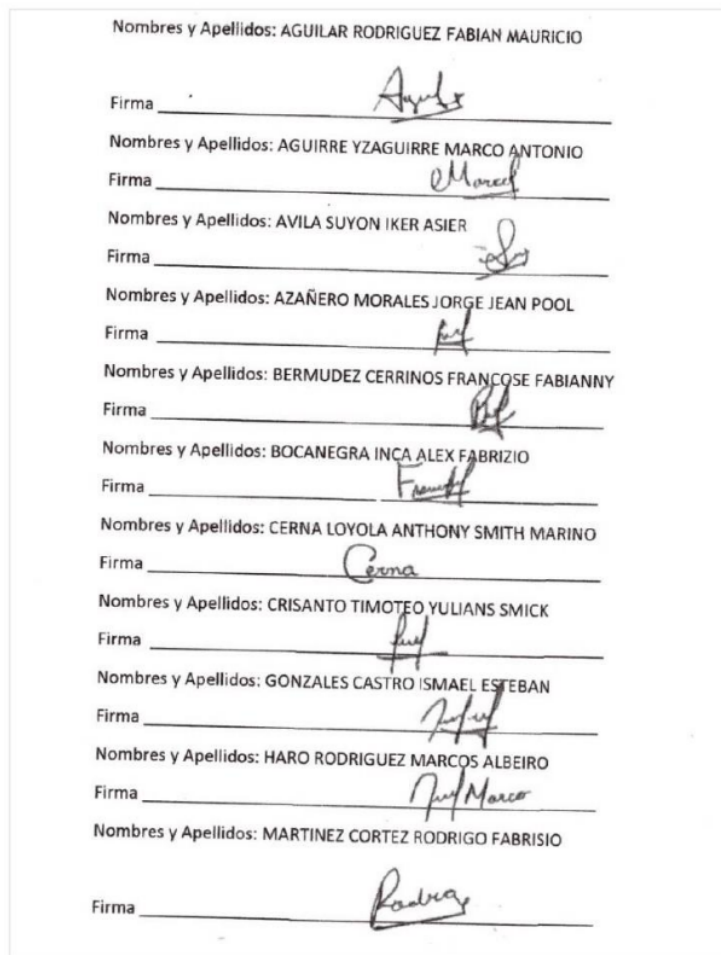 Nombres y Apellidos: AGUILAR RODRIGUEZ FABIAN MAURICIO
Firma
Nombres y Apellidos: AGUIRRE YZAGUIRRE MARCO ANTONIO
Firma
Nombres y Apellidos: AVILA SUYON IKER ASIER
Firma
Nombres y Apellidos: AZAÑERO MORALES JORGE JEAN POOL
Firma
Nombres y Apellidos: BERMUDEZ CERRINOS FRANCOSE FABIANNY
Firma
Nombres y Apellidos: BOCANEGRA INCA ALEX FABRIZIO
Firma
Nombres y Apellidos: CERNA LOYOLA ANTHONY SMITH MARINO
Firma Cerna
Nombres y Apellidos: CRISANTO TIMOTEO YULIANS SMICK
Firma
Nombres y Apellidos: GONZALES CASTRO ISMAEL ESTEBAN
Firma
Nombres y Apellidos: HARO RODRIGUEZ MARCOS ALBEIRO
Firma Marco
Nombres y Apellidos: MARTINEZ CORTEZ RODRIGO FABRISIO
Firma